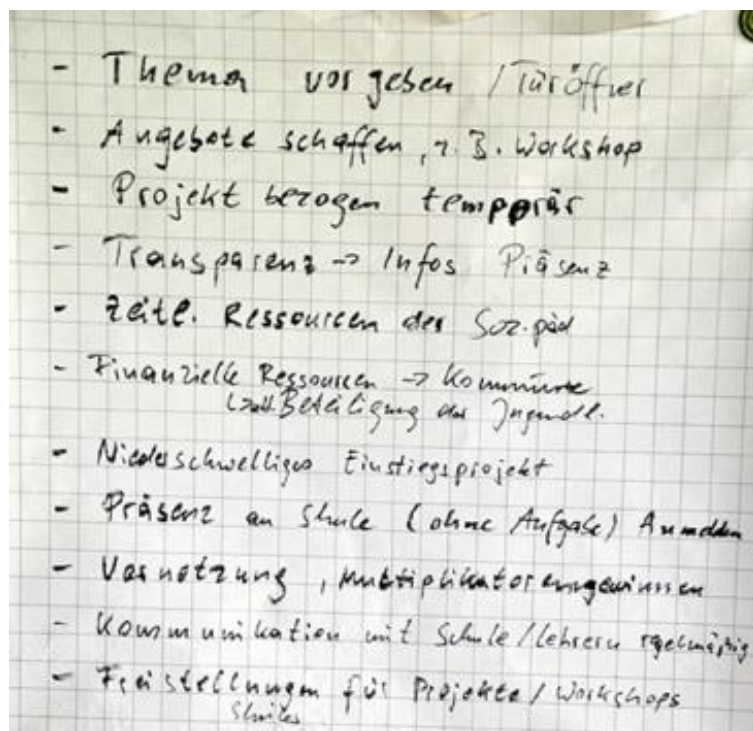 - Thema vorgeben / Türöffner
- Angebote schaffen, z. B. Workshop
- Projekt bezogen temporär
- Transparenz -> Infos Präsenz
- Zeitl. Ressourcen der Soz.päd
- Finanzielle Ressourcen -> Kommune
Beteiligung der Jugendl.
- Niederschwelliges Einstiegsprojekt
- Präsenz an Schule (ohne Aufgabe) Anmelden
- Vernetzung, Multiplikatoren gewinnen
- Kommunikation mit Schule/Lehrern regelmäßig
- Freistellungen für Projekte/Workshops
Schüler